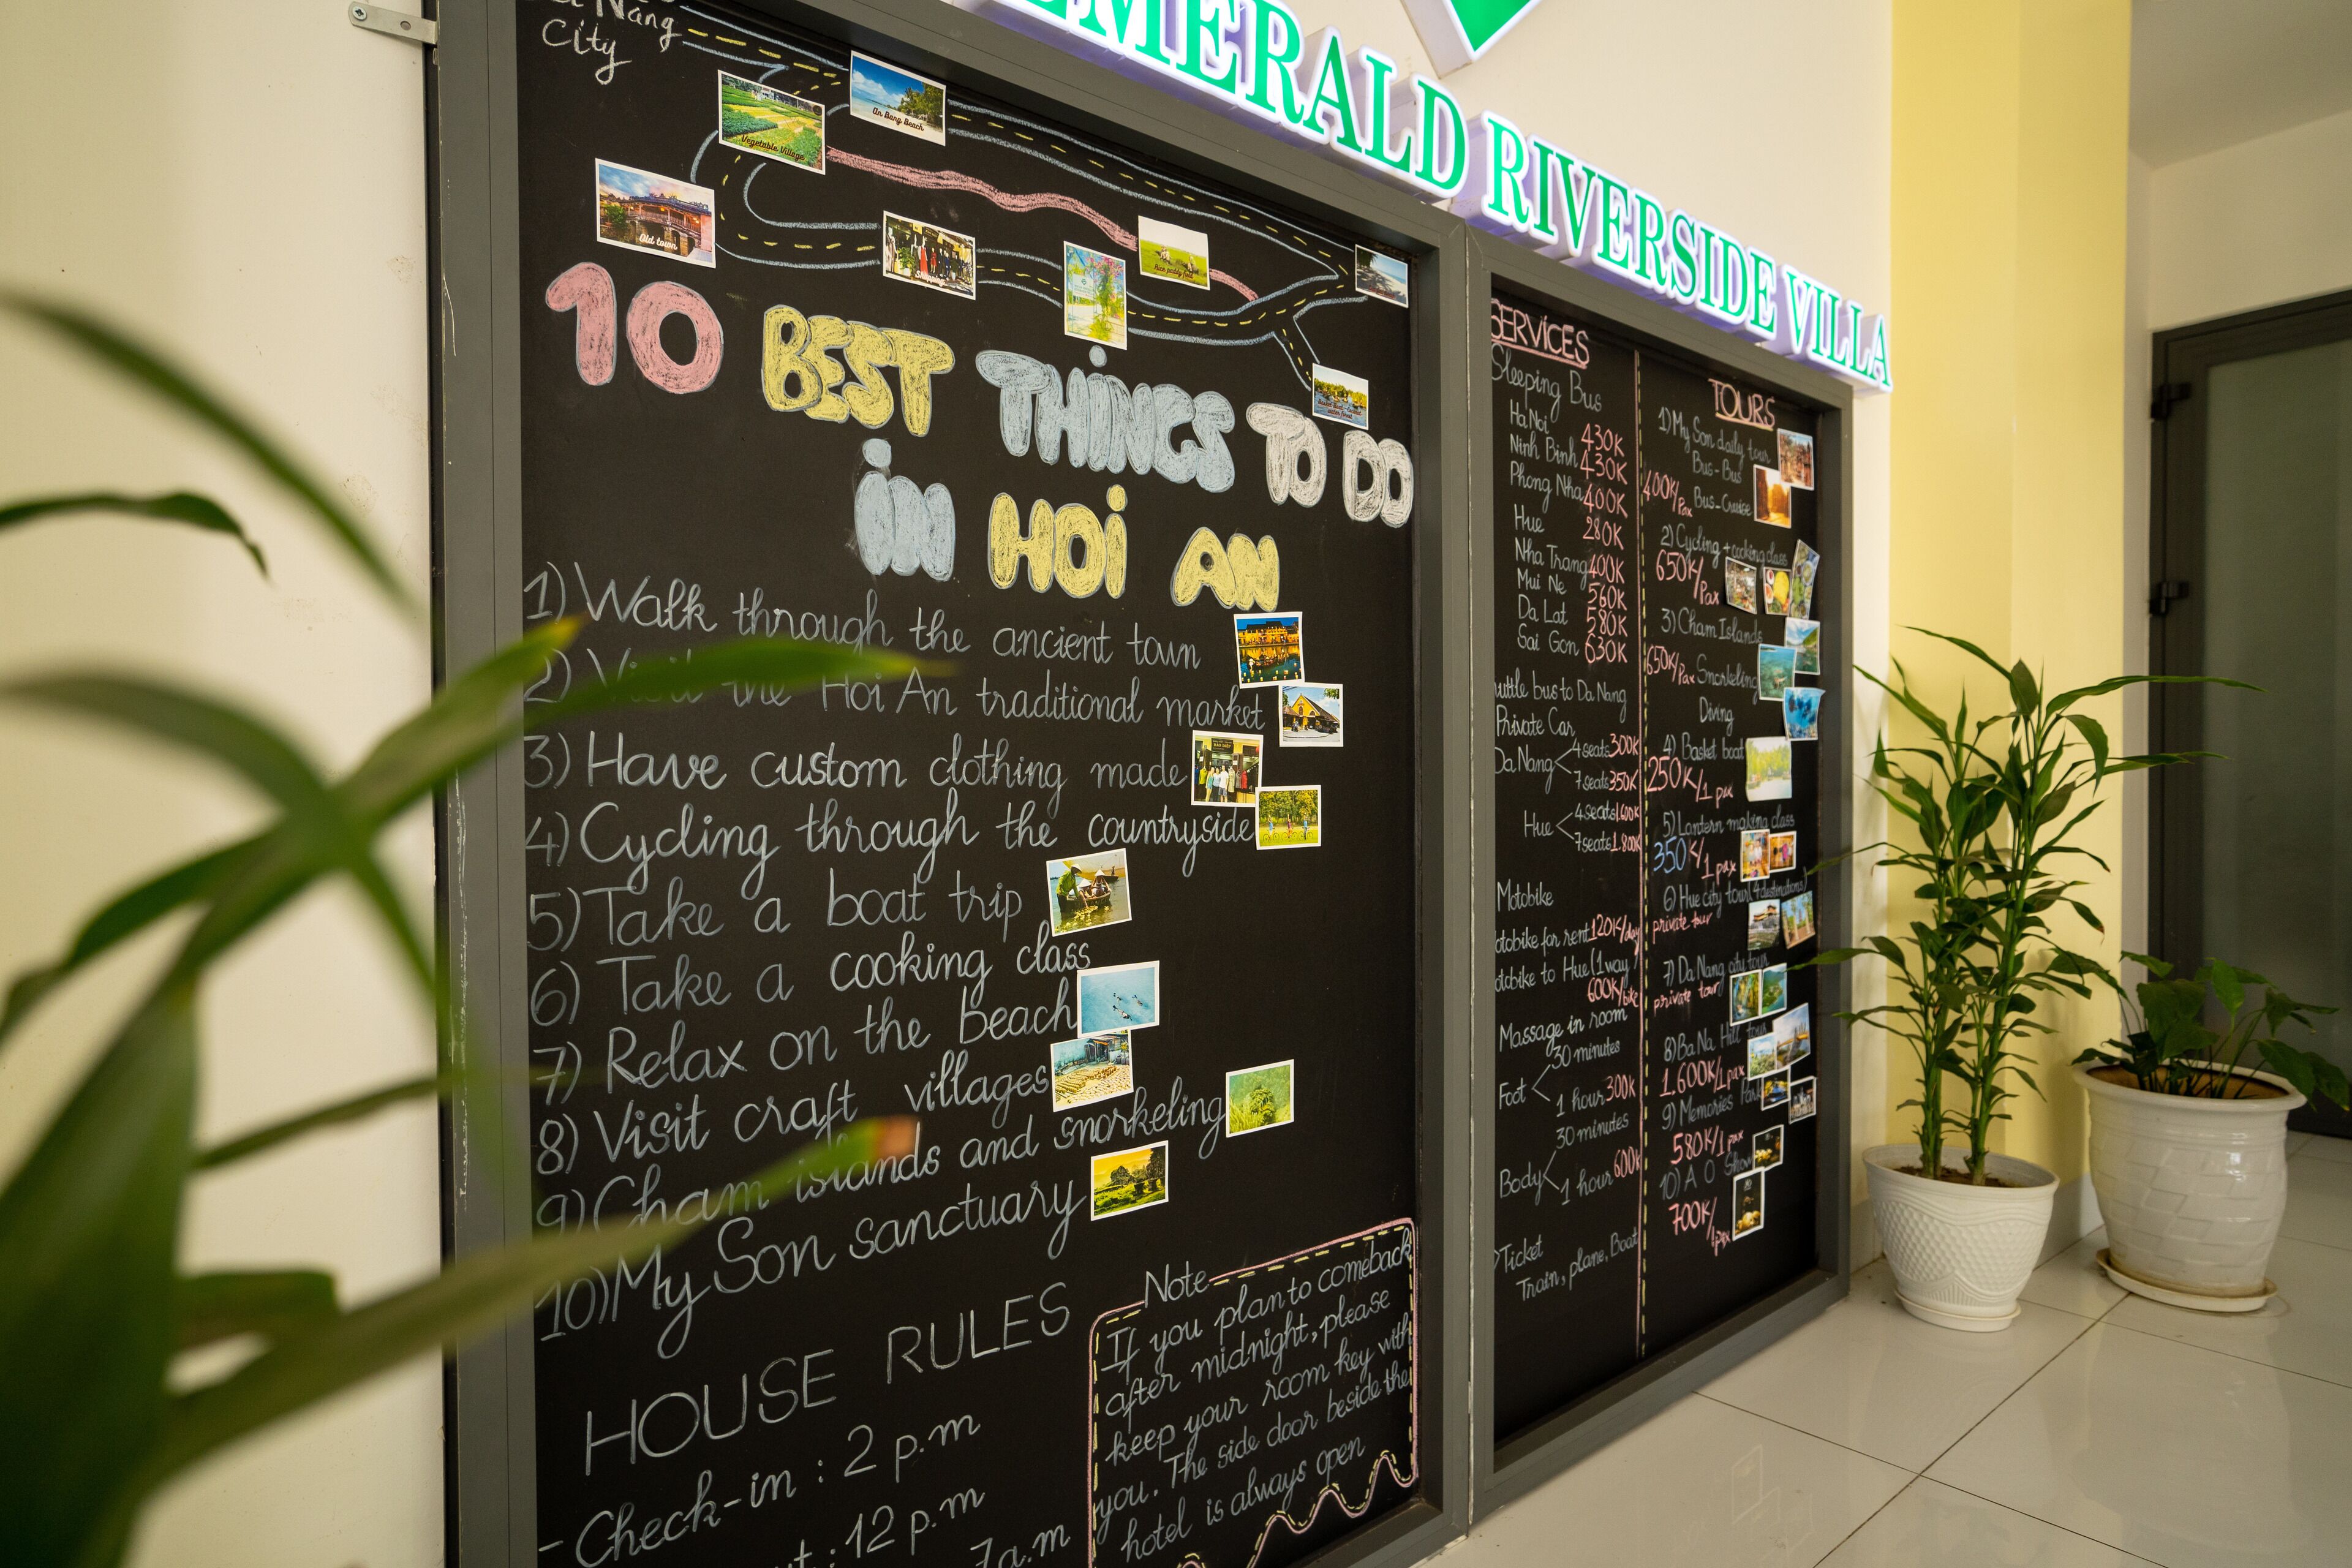 Nang
City
An Bang Beach
Vegetable Village
Old town
Rice paddy field
10 BEST THINGS TO DO
IN HOI AN
1) Walk through the ancient town
2) Visit the Hoi An traditional market
3) Have custom clothing made
4) Cycling through the countryside
5) Take a boat trip
6) Take a cooking class
7) Relax on the beach
8) Visit craft villages
9) Cham islands and snorkeling
10) My Son sanctuary
HOUSE RULES
- Check-in : 2 p.m
: 12 p.m
7a.m
Note
If you plan to comeback
after midnight, please
keep your room key with
you. The side door beside the
hotel is always open
EMERALD RIVERSIDE VILLA
SERVICES
Sleeping Bus
Ha Noi 430K
Ninh Binh 430K
Phong Nha 400K
Hue 280K
Nha Trang 400K
Mui Ne 560K
Da Lat 580K
Sai Gon 630K
uttle bus to Da Nang
Private Car
Da Nang < 4 seats 300K
7 seats 350K
Hue < 4 seats 1.600K
7 seats 1.800K
Motobike
otobike for rent 120K/day
otobike to Hue (1 way)
600K/bike
Massage in room
30 minutes
Foot <
1 hour 300K
30 minutes
Body <
1 hour 600K
Ticket
Train, plane, Boat
TOURS
1) My Son daily tour
Bus - Bus
400K/Pax Bus - Cruise
2) Cycling + cooking class
650K/Pax
3) Cham Islands
650K/Pax Snorkeling
Diving
4) Basket boat
250K/1 pax
5) Lantern making class
350K/1 pax
6) Hue city tour (4 destinations)
private tour
7) Da Nang city tour
private tour
8) Ba Na Hill tour
1.600K/1pax
9) Memories Park
580K/1pax
10) A O Show
700K/1pax